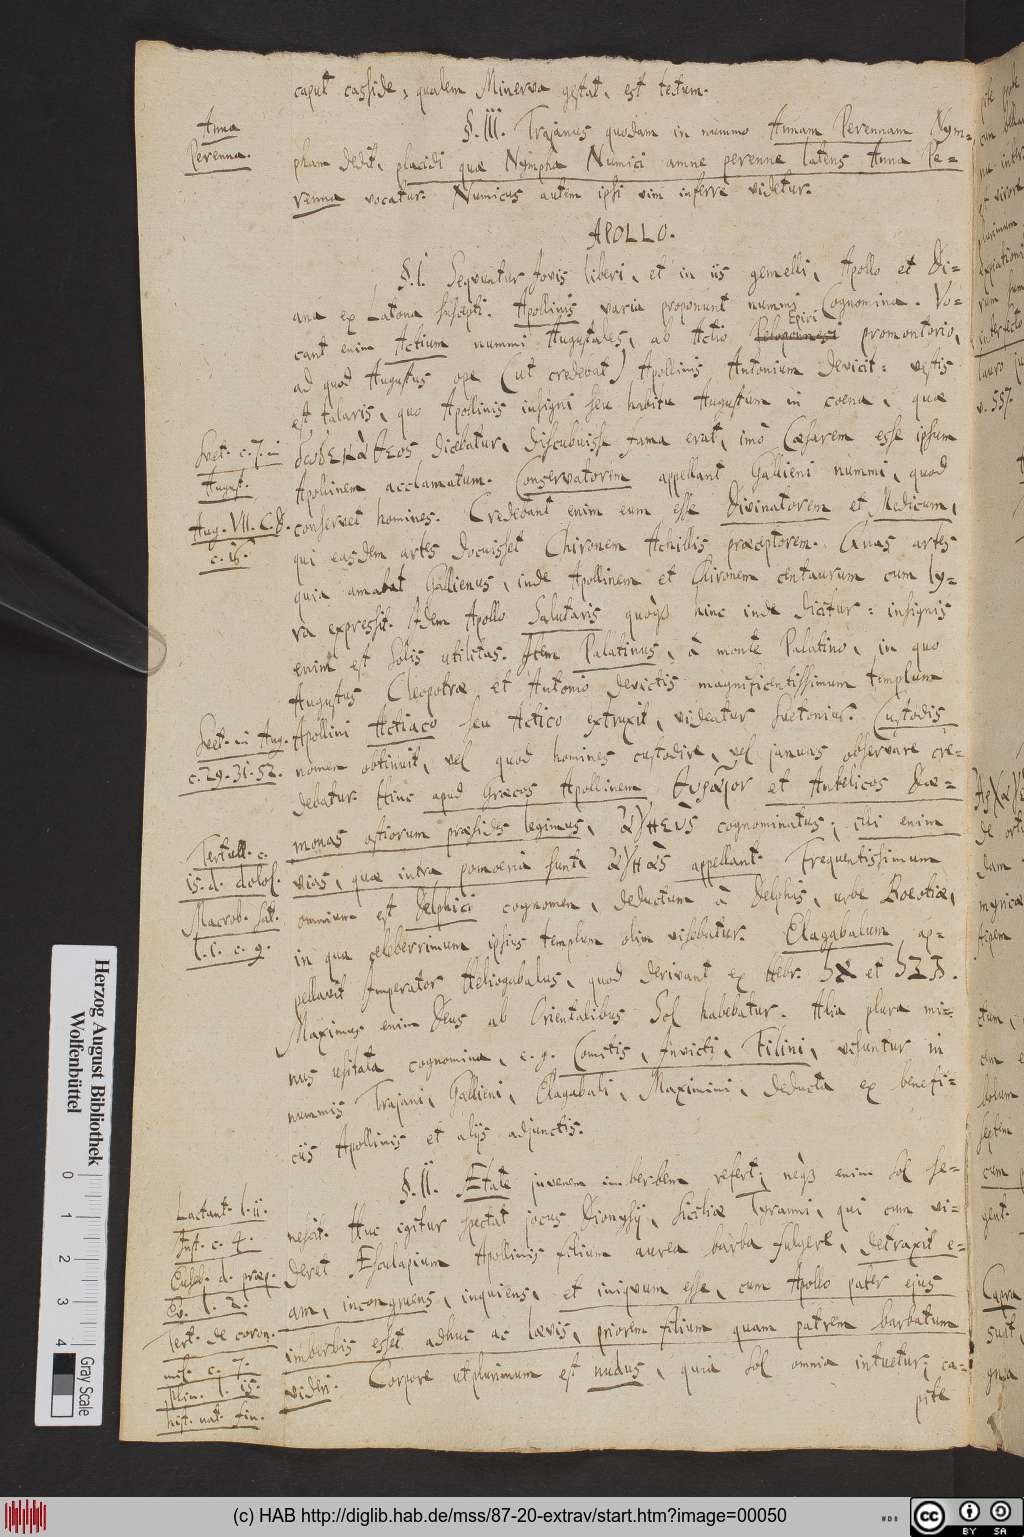 caput casside, qualem Minerva gestat, est tectum.
Anna
Perenna.
§. III. Trajanus quodam in nummo Annam Perennam Nym=
pham dedit, placidi quae Nympha Numici amne perenne latens Anna Pe=
renna vocatur. Numicus autem ipsi vim inferre videtur.
APOLLO.
§. I. Sequuntur Jovis liberi, et in iis gemelli, Apollo et Di=
ana ex Latona suscepti. Apollinis varia proponunt nummi Cognomina. Vo=
cant enim Actium nummi Augustales, ab Actio Peloponnesi Epiri promontorio,
ad quod Augustus ope (ut credebat) Apollinis Antonium devicit: vestis
est talaris, quo Apollinis insigni seu habitu Augustum in coena, quae
Svet. c. 7. in
August.
δωδεκάθεος dicebatur, discubuisse fama erat, imò Caesarem esse ipsum
Apollinem acclamatum. Conservatorem appellant Gallieni nummi, quod
Aug. VII. C.D.
c. 15.
conservet homines. Credebant enim eum esse Divinatorem et Medicum,
qui easdem artes docuisset Chironem Achillis praeceptorem. Quas artes
quia amabat Gallienus, inde Apollinem et Chironem centaurum cum ly=
ra expressit. Idem Apollo Salutaris quoqȝ hinc inde dicitur: insignis
enim est Solis utilitas. Item Palatinus, à monte Palatino, in quo
Augustus Cleopatrae et Antonio devictis magnificentissimum templum
Svet. in Aug.
c. 29. 31. 52.
Apollini Actiaco seu Actico extruxit, videatur Suetonius. Custodis
nomen obtinuit, vel quod homines custodire, vel januas observare cre=
debatur. Hinc apud Graecos Apollinem θυραῖον et Antelicos Dae=
monas ostiorum praesides legimus, ἀγυιεὺς cognominatus; illi enim
Tertull. c.
15. d. dolol.
Macrob. Sat.
l. 1. c. 9.
vias, quae intra pomoeria sunt, ἀγυιὰς appellant. Frequentissimum
omnium est Delphici cognomen, deductum à Delphis, urbe Boeotiae,
in qua celeberrimum ipsius templum olim visebatur. Elagabalum ap=
pellavit Imperator Heliogabalus, quod derivant ex Hebr. et
Maximus enim Deus ab Orientalibus Sol habebatur. Alia plura mi=
nus usitata cognomina, e. g. Comitis, Invicti, Filini, visuntur in
nummis Trajani, Gallieni, Elagabali, Maximini, deducta ex benefi=
ciis Apollinis et alijs adjunctis.
§. II. Etate juvenem imberbem refert; neqȝ enim sol se=
Lactant. l. ii.
Inst. c. 4.
Euseb. d. praep.
Ev. l. 2.
Tert. de coron.
mil. c. 7.
Plin. l. 15.
hist. nat. fin.
nescit. Huc igitur spectat jocus Dionysij, Siciliae Tyranni, qui cum vi=
deret Esculapium Apollinis filium aurea barba fulgere, detraxit e=
am, incongruens, inquiens, et iniquum esse, cum Apollo pater ejus
imberbis esset adhuc ac laevis, priorem filium quam patrem barbatum
videri. Corpore utplurimum est nudus, quia sol omnia intuetur; ca=
pite
Herzog August Bibliothek
Wolfenbüttel
0 1 2 3 4
Gray Scale
(c) HAB http://diglib.hab.de/mss/87-20-extrav/start.htm?image=00050
cc BY SA